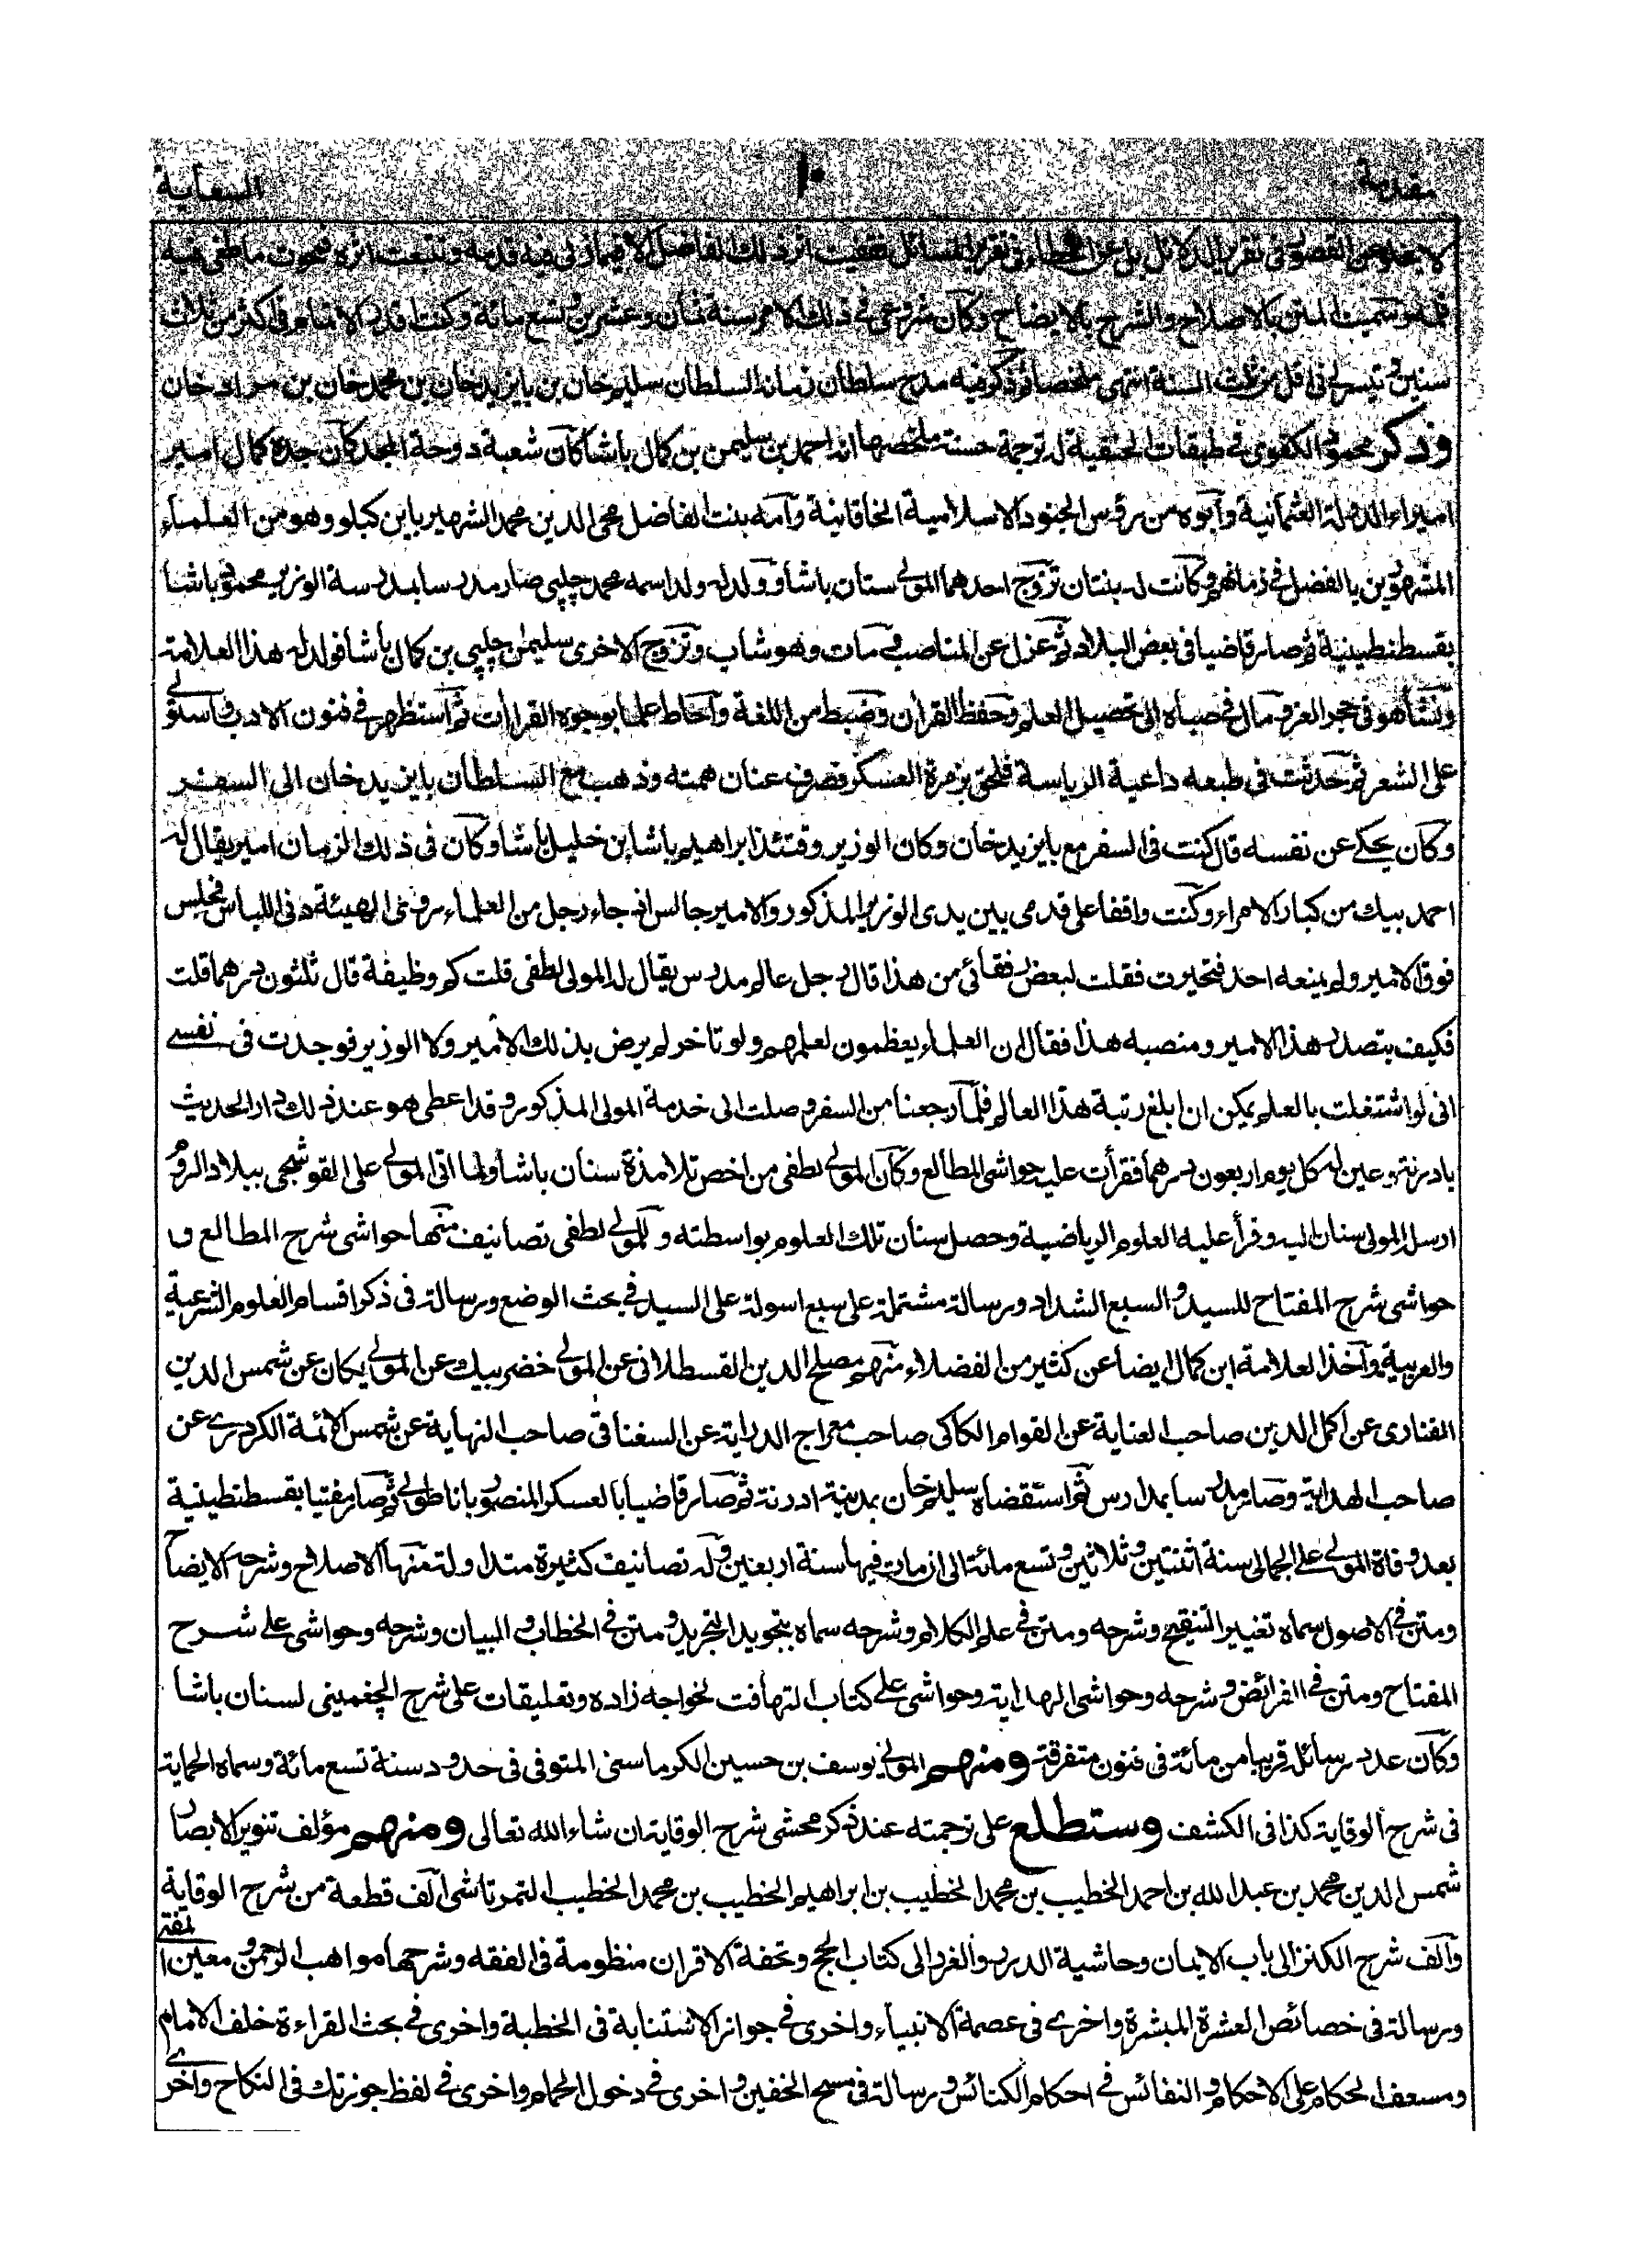 مقدمة ١٠ السعاية
لا يخلو عن القصور في تقرير الدلائل بل عن الخطاء في تحرير المسائل فتعقبت اثر ذلك الفاضل الا فيما زل فيه قدمه وتتبعت اثره فمحوت ما طغى فيه
قلمه وسميت المتن بالاصلاح والشرح بالايضاح وكان شروعي في ذلك الامر سنة ثمان وعشرين وتسع مائة وكنت اقدر الاتمام في اكثر من ثلاث
سنين وتيسر لي في اقل من ثلث السنة انتهى ملخصا وذكر فيه مدح سلطان زمانه السلطان سليم خان بن بايزيد خان بن محمد خان بن مراد خان
وذكر محمود الكفوي في طبقات الحنفية له ترجمة حسنة ملخصها انه احمد بن سليمن بن كمال باشا كان شعبة دوحة المجد كان جده كمال امير
امراء الدولة العثمانية وابوه من رؤس الجنود الاسلامية الخاقانية وامه بنت الفاضل محي الدين محمد الشهير بابن كبلو وهو من العلماء
المشهورين بالفضل في زمانهم وكانت له بنتان تزوج احدهما المولى سنان باشا وولد له ولد اسمه محمد چلبي صار مدرسا بمدرسة الوزير محمود باشا
بقسطنطينية ثم صار قاضيا في بعض البلاد ثم عزل عن المناصب ومات وهو شاب وتزوج الاخرى سليمن چلبي بن كمال باشا فولد له هذا العلامة
ونشأ هو في حجر العز ومال في صباه الى تحصيل العلم وحفظ القران وضبط من اللغة واحاط علما بوجوه القراات ثم استظهر في فنون الادب
على الشعر ثم حدثت في طبعه داعية الرياسة فلحق بزمرة العسكر فصرف عنان همته وذهب مع السلطان بايزيد خان الى السفر
وكان يحكي عن نفسه قال كنت في السفر مع بايزيد خان وكان الوزير وقتئذ ابراهيم باشا بن خليل باشا وكان في ذلك الزمان امير يقال له
احمد بيك من كبار الامراء وكنت واقفا على قدمي بين يدي الوزير المذكور والامير جالس اذ جاء رجل من العلماء رث الهيئة دني اللباس فجلس
فوق الامير ولم يمنعه احد فتحيرت فقلت لبعض رفقائي من هذا قال رجل عالم مدرس يقال له المولى لطفي قلت كم وظيفة قال ثلثون درهما قلت
فكيف يتصدر هذا الامير ومنصبه هذا فقال ان العلماء يعظمون لعلمهم ولو تاخر لم يرض بذلك الامير ولا الوزير فوجدت في نفسي
اني لو اشتغلت بالعلم يمكن ان ابلغ رتبة هذا العالم فلما رجعنا من السفر وصلت الى خدمة المولى المذكور وقد اعطى هو عند ذلك دار الحديث
بادرنة وعين له كل يوم اربعون درهما فقرأت عليه حواشي المطالع وكان المولى لطفي من اخص تلامذة سنان باشا ولما اتى المولى علي القوشجي ببلاد الروم
ارسل المولى سنان اليه وقرأ عليه العلوم الرياضية وحصل سنان تلك العلوم بواسطته وللمولى لطفي تصانيف منها حواشي شرح المطالع و
حواشي شرح المفتاح للسيد والسبع الشداد ورسالة مشتملة على سبع اسولة على السيد في بحث الوضع ورسالة في ذكر اقسام العلوم الشرعية
والعربية واخذ العلامة ابن كمال ايضا عن كثير من الفضلاء منهم مصلح الدين القسطلاني عن المولى خضر بيك عن المولى يكان عن شمس الدين
الفناري عن اكمل الدين صاحب العناية عن القوام الكاكي صاحب معراج الدراية عن السغناقي صاحب النهاية عن شمس الائمة الكردري عن
صاحب الهداية وصار مدرسا بمدارس ثم استقضاه سليم خان بمدينة ادرنة ثم صار قاضيا بالعسكر المنصور باناطولي ثم صار مفتيا بقسطنطينية
بعد وفاة المولى علي الجمالي سنة اثنتين وثلاثين وتسع مائة الى ان مات فيها سنة اربعين وله تصانيف كثيرة متداولة منها الاصلاح وشرحه الايضاح
ومتن في الاصول سماه تغيير التنقيح وشرحه ومتن في علم الكلام وشرحه سماه بتجويد التجريد ومتن في الخطاب والبيان وشرحه وحواشي على شرح
المفتاح ومتن في الفرائض وشرحه وحواشي الهداية وحواشي على كتاب التهافت لخواجه زاده وتعليقات على شرح الچغميني لسنان باشا
وكان عدد رسائله قريبا من مائة في فنون متفرقة ومنهم المولى يوسف بن حسين الكرماسني المتوفى في حدود سنة تسع مائة وسماه الحماية
في شرح الوقاية كذا في الكشف وستطلع على ترجمته عند ذكر محشي شرح الوقاية ان شاء الله تعالى ومنهم مؤلف تنوير الابصار
شمس الدين محمد بن عبد الله بن احمد الخطيب بن محمد الخطيب بن ابراهيم الخطيب بن محمد الخطيب التمرتاشي الف قطعة من شرح الوقاية
والف شرح الكنز الى باب الايمان وحاشية الدرر والغرر الى كتاب الحج وتحفة الاقران منظومة في الفقه وشرحها مواهب الرحمن ومعين المفتي
ورسالة في خصائص العشرة المبشرة واخرى في عصمة الانبياء واخرى في جواز الاستنابة في الخطبة واخرى في بحث القراءة خلف الامام
ومسعف الحكام على الاحكام والنفائس في احكام الكنائس ورسالة في مسح الخفين واخرى في دخول الحمام واخرى في لفظ جوزتك في النكاح واخرى